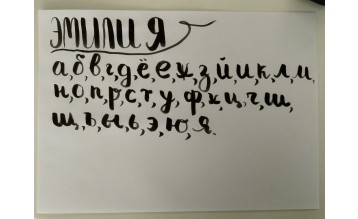 ЭМИЛИЯ
а,б,в,г,д,ё,е,ж,з,й,и,к,л,м,
н,о,п,р,с,т,у,ф,х,ц,ч,ш,
щ,ъ,ы,ь,э,ю,я.